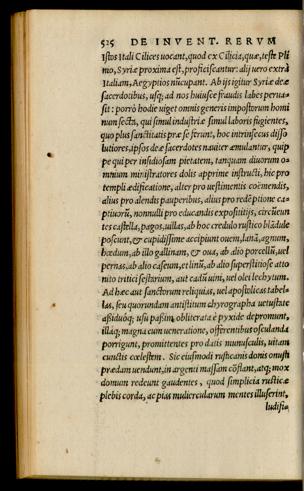 525 DE INVENT. RERVM
Istos Itali Cilices uocant, quod ex Cilicia, quæ, teste Pli
nio, Syriæ proxima est, proficiscantur: alij uero extrà
Italiam, Aegyptios nūcupant. Ab ijs igitur Syriæ deæ
sacerdotibus, usq; ad nos huiusce fraudis labes perua-
sit: porrò hodie uiget omnis generis impostorum homi
num secta, qui simul industriæ simul laboris fugientes,
quo plus sanctitatis præ se ferunt, hoc intrinsecus disso
lutiores, ipsos deæ sacerdotes nauiter æmulantur, quip
pe qui per insidiosam pietatem, tanquam diuorum o-
mnium ministratores dolis apprime instructi, hic pro
templi ædificatione, alter pro uestimentis coëmendis,
alius pro alendis pauperibus, alius pro redēptione ca-
ptiuorū, nonnulli pro educandis expositijs, circūeun
tes castella, pagos, uillas, ab hoc credulo rustico blādule
poscunt, & cupidissime accipiunt ouem, lanā, agnum,
hœdum, ab illo gallinam, & oua, ab alio porcellū, uel
pernas, ab alio caseum, et linū, ab alio superstitiose atto
nito tritici sestarium, aut cadū uini, uel olei lechytum.
Ad hæc aut sanctorum reliquias, uel apostolicas tabel-
las, seu quorundam antistitum chyrographa uetustate
assiduóq; usu passim obliterata è pyxide depromunt,
illáq; magna cum ueneratione, offerentibus osculanda
porrigunt, promittentes pro datis munusculis, uitam
cunctis cœlestem. Sic eiusmodi rusticanis donis onusti
prædam uendunt, in argenti massam cōflant, atq; mox
domum redeunt gaudentes, quod simplicia rusticæ
plebis corda, ac pias muliercularum mentes illuserint,
ludifi